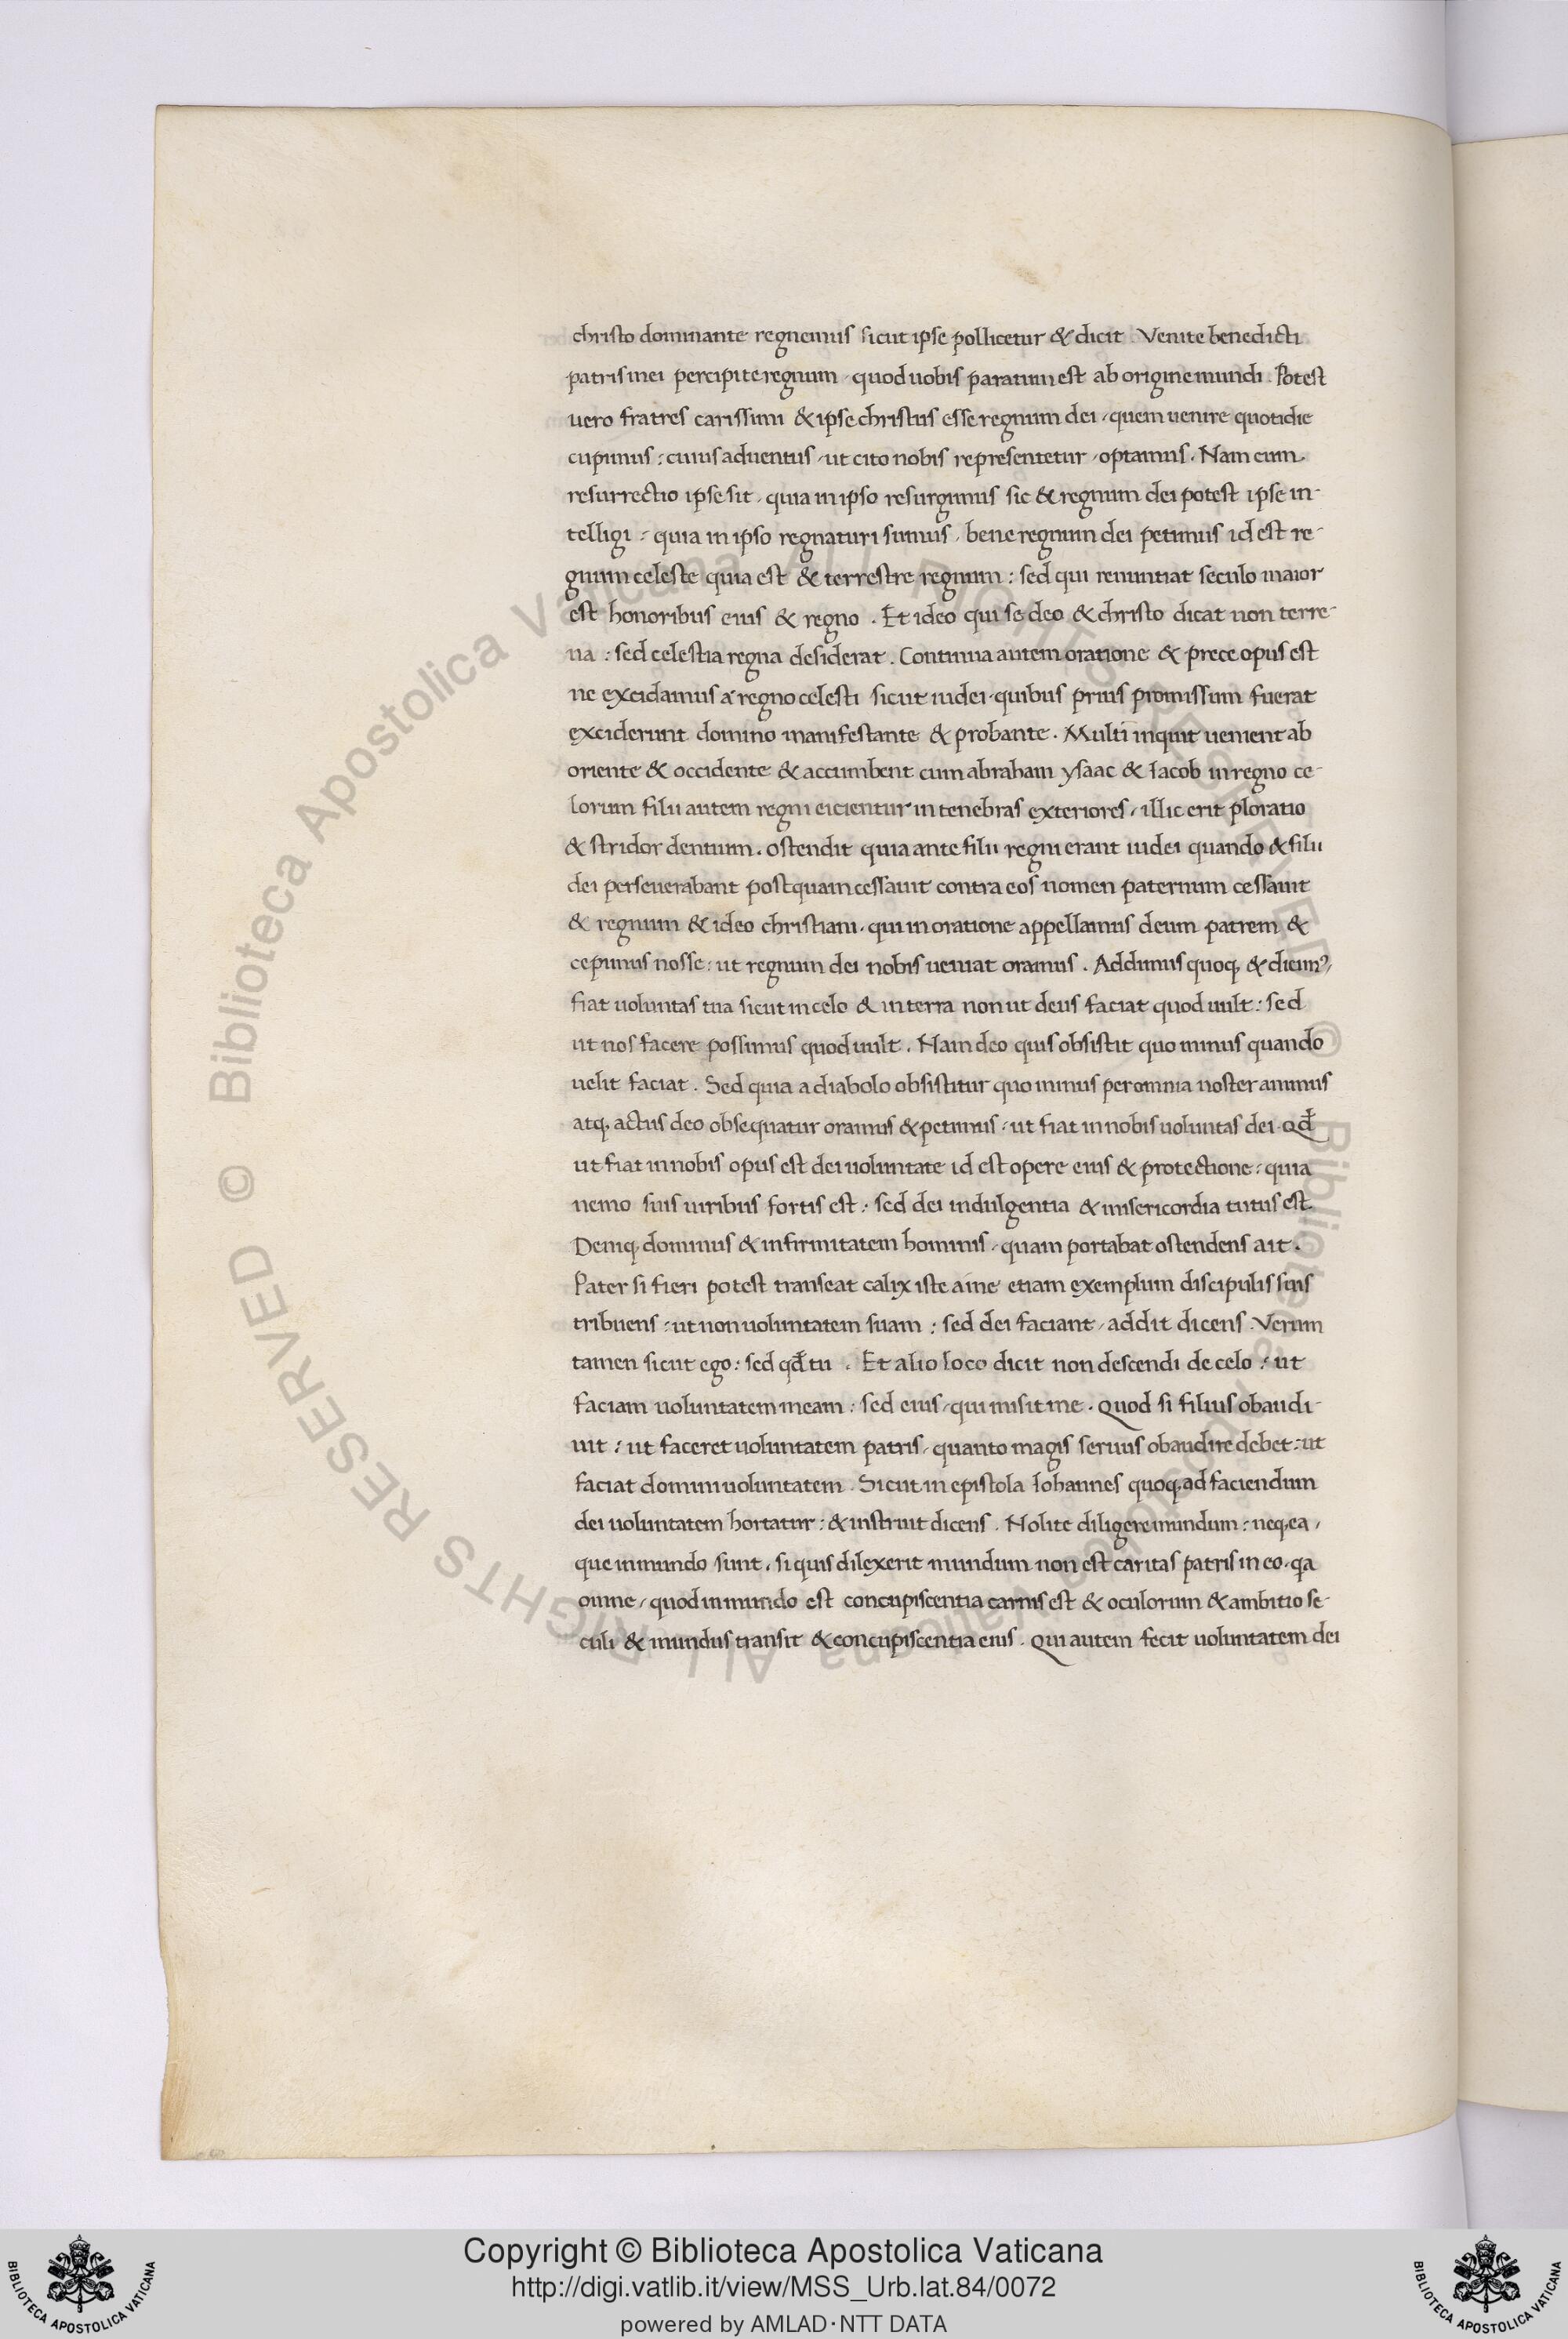 christo dominante regnemus sicut ipse pollicetur & dicit. Venite benedicti
patris mei percipite regnum, quod uobis paratum est ab origine mundi. Potest
uero fratres carissimi & ipse christus esse regnum dei, quem uenire quotidie
cupimus: cuius aduentus, ut cito nobis representetur, optamus. Nam cum
resurrectio ipse sit, quia in ipso resurgimus sic & regnum dei potest ipse in-
telligi: quia in ipso regnaturi sumus, bene regnum dei petimus id est re-
gnum celeste quia est & terrestre regnum: sed qui renuntiat seculo maior
est honoribus eius & regno. Et ideo qui se deo & christo dicat non terre-
na: sed celestia regna desiderat. Continua autem oratione & prece opus est
ne excidamus á regno celesti sicut iudei, quibus prius promissum fuerat
exciderunt domino manifestante & probante. Multi inquit uenient ab
oriente & occidente & accumbent cum abraham ysaac & Iacob in regno ce-
lorum filii autem regni eicientur in tenebras exteriores, illic erit ploratio
& stridor dentium. ostendit quia ante filii regni erant iudei quando & filii
dei perseuerabant postquam cessauit contra eos nomen paternum cessauit
& regnum & ideo christiani, qui in oratione appellamus deum patrem &
cepimus nosse: ut regnum dei nobis ueniat oramus. Addimus quoq, & dicimꝰ,
fiat uoluntas tua sicut in celo & in terra non ut deus faciat quod uult: sed
ut nos facere possimus quod uult. Nam deo quis obsistit quo minus quando
uelit faciat. Sed quia a diabolo obsistitur quo minus per omnia noster animus
atq, actus deo obsequatur oramus & petimus: ut fiat in nobis uoluntas dei. Qđ
ut fiat in nobis opus est dei uoluntate id est opere eius & protectione: quia
nemo suis uiribus fortis est: sed dei indulgentia & misericordia tutus est.
Deniq, dominus & infirmitatem hominis, quam portabat ostendens ait.
Pater si fieri potest transeat calix iste a me etiam exemplum discipulis suis
tribuens: ut non uoluntatem suam: sed dei faciant, addit dicens. Verum
tamen sicut ego: sed qđ tu. Et alio loco dicit non descendi de celo: ut
faciam uoluntatem meam: sed eius, qui misit me. Quod si filius obaudi-
uit: ut faceret uoluntatem patris, quanto magis seruus obaudire debet: ut
faciat domini uoluntatem. Sicut in epistola Iohannes quoq, ad faciendum
dei uoluntatem hortatur: & instruit dicens. Nolite diligere mundum: neq, ea,
que in mundo sunt, si quis dilexerit mundum non est caritas patris in eo, qa
omne, quod in mundo est concupiscentia carnis est & oculorum & ambitio se-
culi & mundus transit & concupiscentia eius. Qui autem fecit uoluntatem dei
© Biblioteca Apostolica Vaticana ALL RIGHTS RESERVED
© Biblioteca Apostolica Vaticana ALL RIGHTS RESERVED
Copyright © Biblioteca Apostolica Vaticana
http://digi.vatlib.it/view/MSS_Urb.lat.84/0072
powered by AMLAD·NTT DATA
BIBLIOTECA APOSTOLICA VATICANA
BIBLIOTECA APOSTOLICA VATICANA